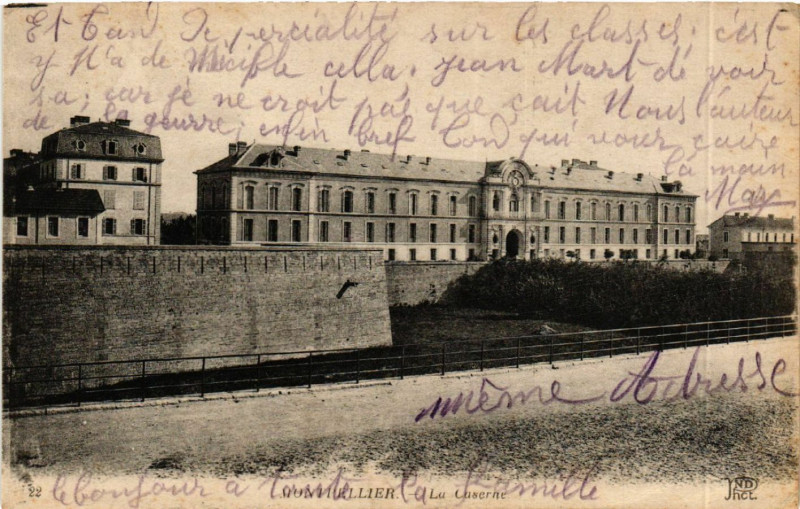 Et tant De percialité sur les classes. c'est
y n'a de Micible cella. jean Mart dé voir
sa; car je ne croit pas que çait Nous l'auteur
de la guerre; enfin bref ton qui vous caire
la main
Max
même Adresse
22 MONTPELLIER. La Caserne
le bonjour a toute la famille
ND
Phot.